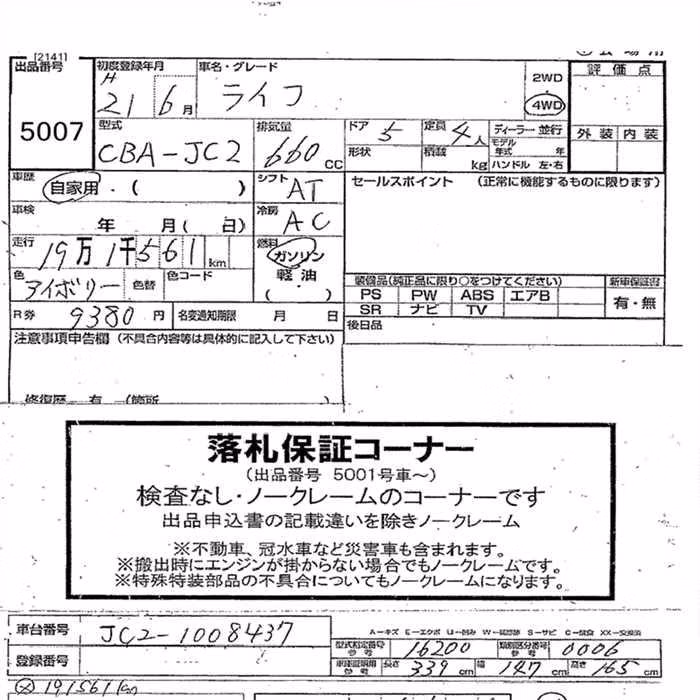 [2141]
出品番号
5007
初度登録年月
H 21 6月
車名・グレード
ライフ
2WD
4WD
評価点
外装 内装
型式
CBA-JC2
排気量
660 CC
ドア 5
定員 4人
形状
積載 kg
ディーラー 並行
モデル年式 年
ハンドル 左・右
車歴
自家用・( )
シフト AT
セールスポイント (正常に機能するものに限ります)
車検
年 月( 日)
冷房 AC
走行
19万1千561km
燃料
ガソリン
軽油
( )
色
アイボリー
色替
色コード
装備品(純正品に限り○をつけてください)
新車保証書
PS PW ABS エアB
SR ナビ TV
有・無
R券 9380円
名変通知期限 月 日
後日品
注意事項申告欄 (不具合内容等は具体的に記入して下さい)
修復歴 有 (箇所 )
落札保証コーナー
(出品番号 5001号車~)
検査なし・ノークレームのコーナーです
出品申込書の記載違いを除きノークレーム
※不動車、冠水車など災害車も含まれます。
※搬出時にエンジンが掛からない場合でもノークレームです。
※特殊特装部品の不具合についてもノークレームになります。
車台番号
JC2-1008437
型式指定番号 参考 16200
類別区分番号 参考 0006
登録番号
長さ 339cm 幅 147cm 高さ 165cm
191561km